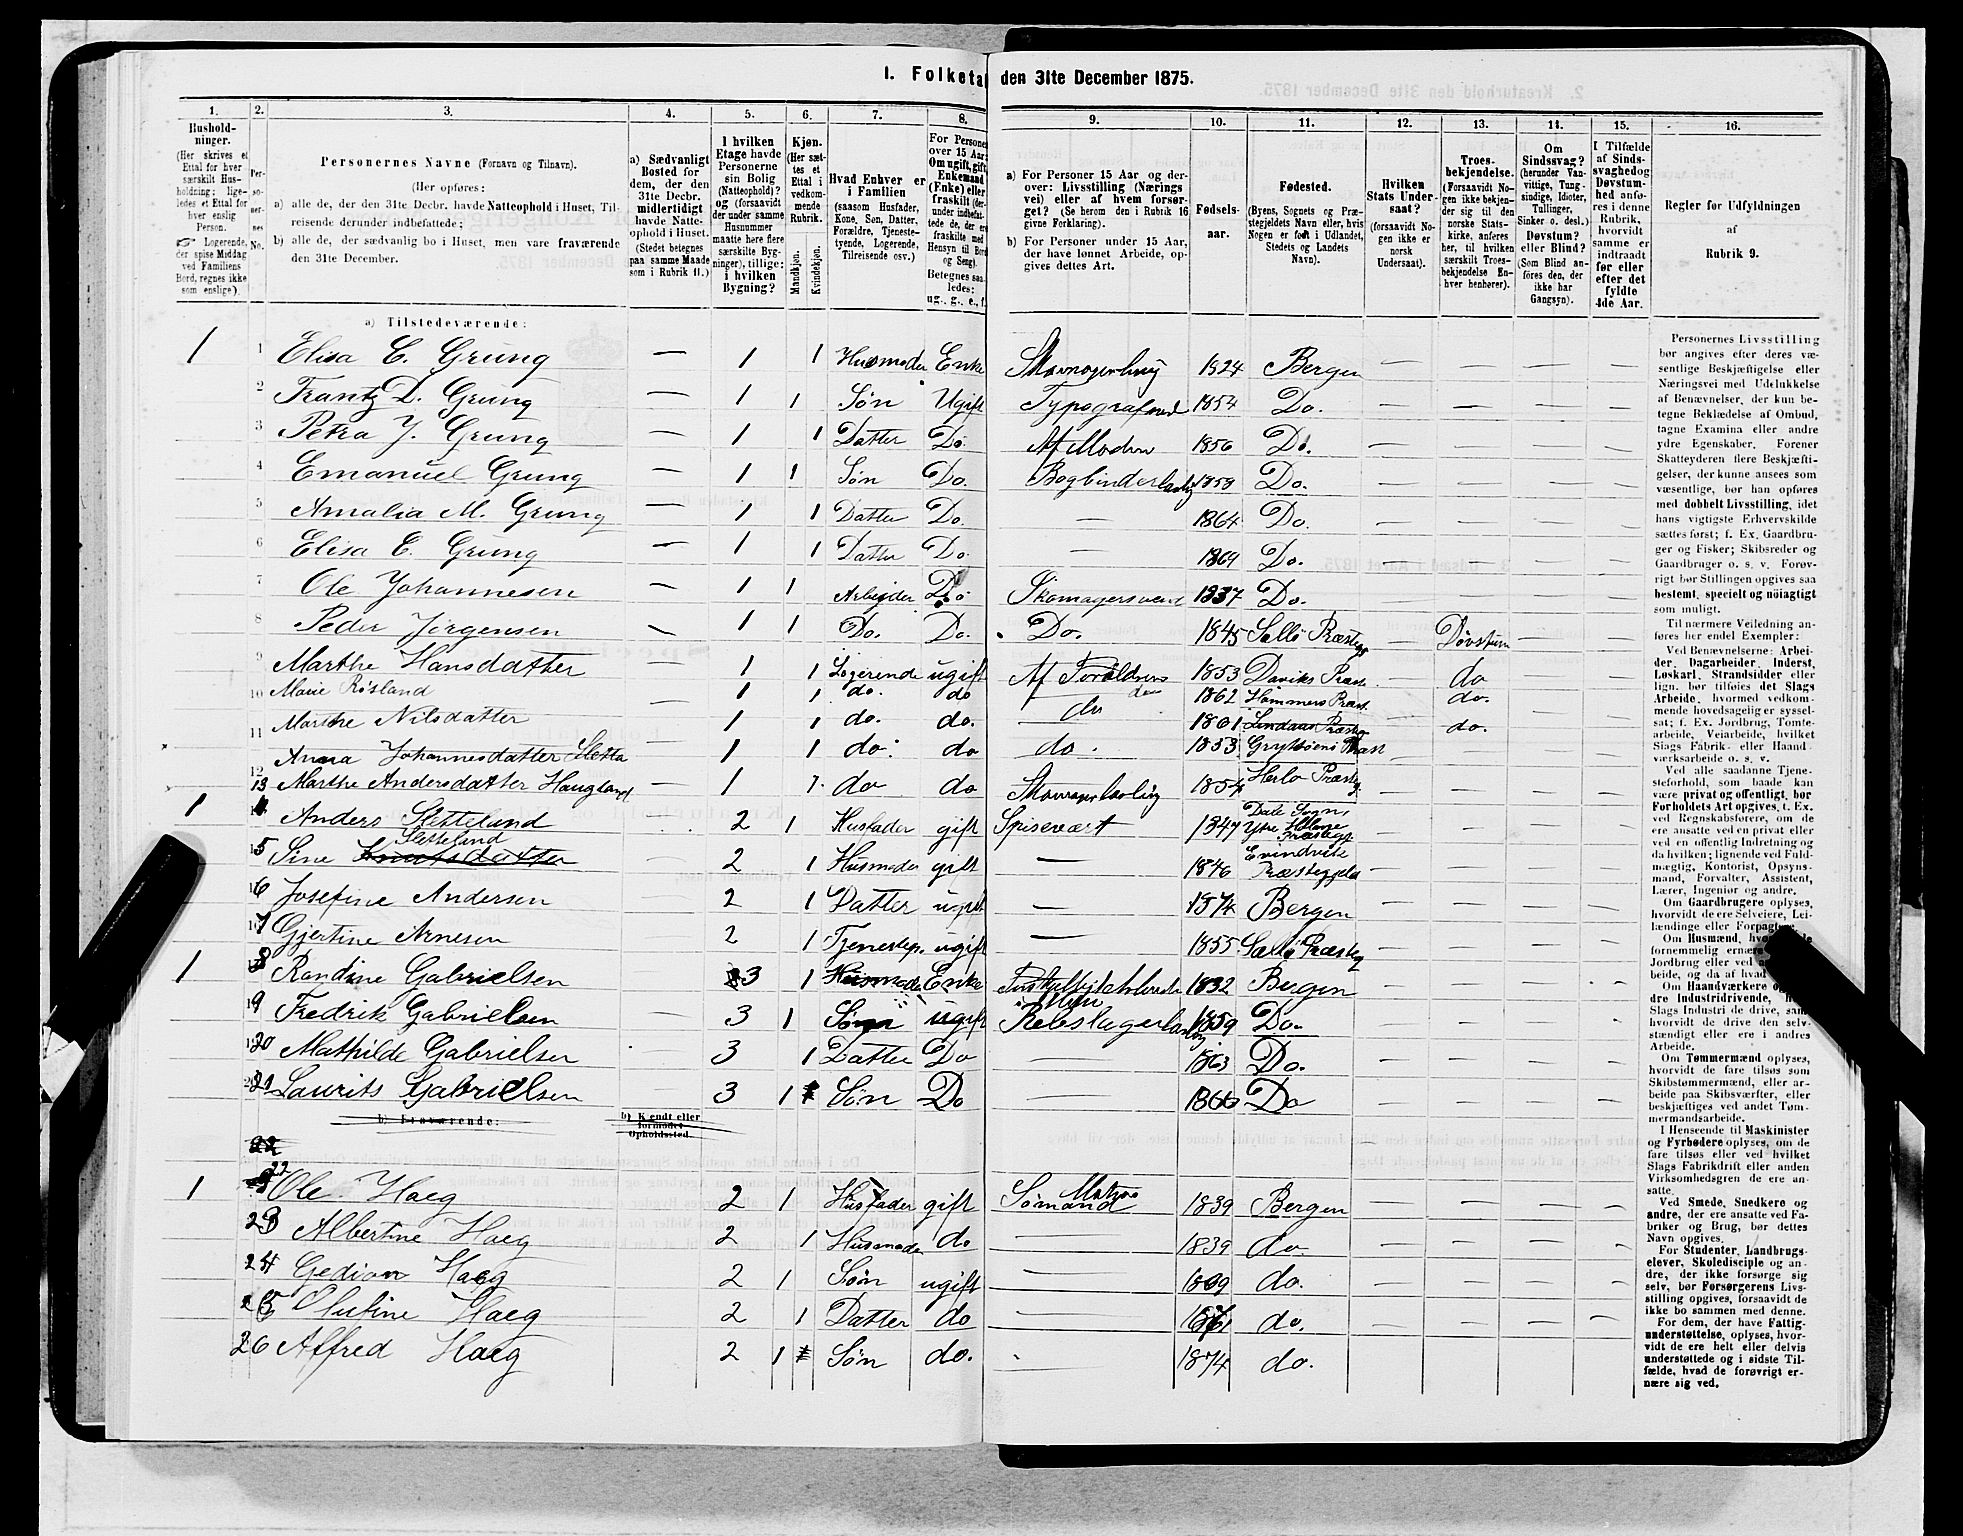 1. Folketa den 31te December 1875.
1. Husholdninger. (Her skrives et Ettal for hver særskilt Husholdning; ligeledes et Ettal for hver enslig Person. ☞ Logerende, der spise Middag ved Familiens Bord, regnes ikke som enslige).
2. Personernes No.
3. Personernes Navne (Fornavn og Tilnavn).
(Her opføres:
a) alle de, der den 31te Decbr. havde Natteophold i Huset, Tilreisende derunder indbefattede;
b) alle de, der sædvanlig bo i Huset, men vare fraværende den 31te December.
4. a) Sædvanligt Bosted for dem, der den 31te Decbr. midlertidigt havde Natteophold i Huset. (Stedet betegnes paa samme Maade som i Rubrik 11.)
5. I hvilken Etage havde Personerne sin Bolig (Natteophold)? og (forsaavidt der under samme Husnummer maatte høre flere særskilte Bygninger), tillige: i hvilken Bygning?
6. Kjøn. (Her sættes et Ettal i vedkommende Rubrik. Mandkjøn. Kvindekjøn.
7. Hvad Enhver er i Familien (saasom Husfader, Kone, Søn, Datter, Forældre, Tjenestetyende, Logerende, Tilreisende osv.)
8. For Persone over 15 Aar: Om ugift, gift, Enkemand (Enke) eller fraskilt
Betegnes saaledes: ug., g., e., f.
9. a) For Personer 15 Aar og derover: Livsstilling (Nærings vei) eller af hvem forsørget? (Se herom den i Rubrik 16 givne Forklaring).
b) For Personer under 15 Aar, der have lønnet Arbeide, opgives dettes Art.
10. Fødselsaar.
11. Fødested. (Byens, Sognets og Præstegjeldets Navn eller, hvis Nogen er født i Udlandet, Stedets og Landets Navn).
12. Hvilken Stats Undersaat? (forsaavidt Nogen ikke er norsk Undersaat).
13. Troesbekjendelse. (Forsaavidt Nogen ikke bekjender sig til den norske Statskirke, anføres her, til hvilken særskilt Troesbekjendelse Enhver henhører).
14. Om Sindssvag? (herunder Vanvittige, Tungsindige, Idioter, Tullinger, Sinker o. desl.) Døvstum? eller Blind? (Som Blind anføres den, der ikke har Gangsyn).
15. I Tilfælde af Sindssvaghed og Døvstumhed anføres i denne Rubrik, hvorvidt samme er indtraadt før eller efter det fyldte 4de Aar.
16. Regler for Udfyldningen af Rubrik 9.
a) Tilstedeværende:
1 1 Elisa C. Grung — 1 1 Husmoder Enke 1824 Bergen — — — —
2 Frantz D. Grung — 1 1 Søn Ugift Typografsvend 1854 Do. — — — —
3 Petra J. Grung — 1 1 Datter Do. Af Moderen 1856 Do. — — — —
4 Emanuel Grung — 1 1 Søn Do. Bogbinderlærlig 1858 Do. — — — —
5 Amalia M. Grung — 1 1 Datter Do. — 1864 Do. — — — —
6 Elisa C. Grung — 1 1 Datter Do. — 1869 Do. — — — —
7 Ole Johannesen — 1 1 Arbeider Do. Skomagersvend 1837 Do. — — — —
8 Peder Jørgensen — 1 1 Do. Do. Do. 1845 Præstegj — Døvstum — —
9 Marthe Hansdatter 1 1 Logerende ugift Af Forældrene 1853 Daviks Præst. — do — —
10 Marie Røsland — 1 1 do. do do 1862 Hammers Præst. do. — —
11 Marthe Nilsdatter — 1 1 do. do. do 1861 Lindaas Præsteg — do. — —
12 Anna Johannesdatter Sletta 1 1 do. do do. 1853
13 Marthe Andersdatter Haugland — 1 1 do do 1854 Herlø Præsteg.
1 14 Anders Sletteland 2 1 Husfader gift Spisevært 1847 Dale Sogn, Ytre Holme Præstegj.
15 Sine Sletteland Knutsdatter — 2 1 Husmoder gift — 1846 Evindvik Præstegjeld
16 Josefine Andersen — 2 1 Datter ugift — 1874 Bergen
17 Gjertine Arnesen — 2 1 Tjenestep. ugift — 1855
1 18 Randine Gabrielsen 3 1 Husmoder Enke 1832 Bergen
19 Fredrik Gabrielsen — 3 1 Søn ugift Rebslagerlærlig 1859 Do.
20 Mathilde Gabrielsen 3 1 Datter Do — 1863 Do.
21 Laurits Gabrielsen — 3 1 Søn Do — 1866 Do
b) Fraværende: b) Kjendt eller formodet Opholdssted.
22
1 22 Ole Haeg 2 1 Husfader gift Sømand Matros 1839 Bergen
23 Albertine Haeg 2 1 Husmoder do — 1839 do
24 Gedion Haeg 2 1 Søn ugift — 1869 do.
25 Olufine Haeg 2 1 Datter do — do.
26 Alfred Haeg 2 1 Søn do. 1874 do.
Personernes Livsstilling bør angives efter deres væsentlige Beskjæftigelse eller Næringsvei med Udelukkelse af Benævnelser, der kun betegne Beklædelse af Ombud, tagne Examina eller andre ydre Egenskaber. Forener Skatteyderen flere Beskjæftigelser, der kunne ansees som væsentlige, bør han opføres med dobbelt Livsstilling, idet hans vigtigste Erhvervskilde sættes først; f. Ex. Gaardbruger og Fisker; Skibsreder og Gaardbruger o. s. v. Forøvrigt bør Stillingen opgives saa bestemt, specielt og nöiagtigt som muligt.
Til nærmere Veiledning anføres her endel Exempler:
Ved Benævnelserne: Arbeider, Dagarbeider, Inderst, Løskarl, Strandsidder eller lign. bør tilføies det Slags Arbeide, hvormed vedkommende hovedsagelig er sysselsat; f. Ex. Jordbrug, Tomtearbeide, Veiarbeide, hvilket Slags Fabrik- eller Haandværksarbeide o. s. v.
Ved alle saadanne Tjenesteforhold, som baade kan være privat og offentligt, bør Forholdets Art opgives, t. Ex. ved Regnskabsførere, om de ere ansatte ved en privat eller ved en offentlig Indretning og da hvilken; lignende ved Fuldmægtig, Kontorist, Opsynsmand, Forvalter, Assistent, Lærer, Ingeniør og andre.
Om Gaardbrugere oplyses, hvorvidt de ere Selveiere, Leilændinge eller Forpagtere.
Om Husmænd,
fornemmelig
beide, og da af hvad
Om Haandværkere
dre Industridrivende,
Slags Industri de drive, samt hvorvidt de drive den selvstændigt eller ere i andres Arbeide.
Om Tømmermænd oplyses, hvorvidt de fare tilsøs som Skibstømmermænd, eller arbeide paa Skibsværfter, eller beskjæftiges ved andet Tømmermandsarbeide.
I Henseende til Maskinister og Fyrbødere oplyses, om de fare tilsøs eller ved hvilket Slags Fabrikdrift eller anden Virksomhedsgren de ere ansatte.
Ved Smede, Snedkere og andre, der ere ansatte ved Fabriker og Brug, bør dettes Navn opgives.
For Studenter, Landbrugselever, Skoledisciple og andre, der ikke forsørge sig selv, bør Forsørgerens Livsstilling opgives, forsaavidt de ikke bo sammen med denne.
For dem, der have Fattigunderstøttelse, oplyses, hvorvidt de ere helt eller delvis understøttede og i sidste Tilfælde, hvad de forøvrigt ernære sig ved.